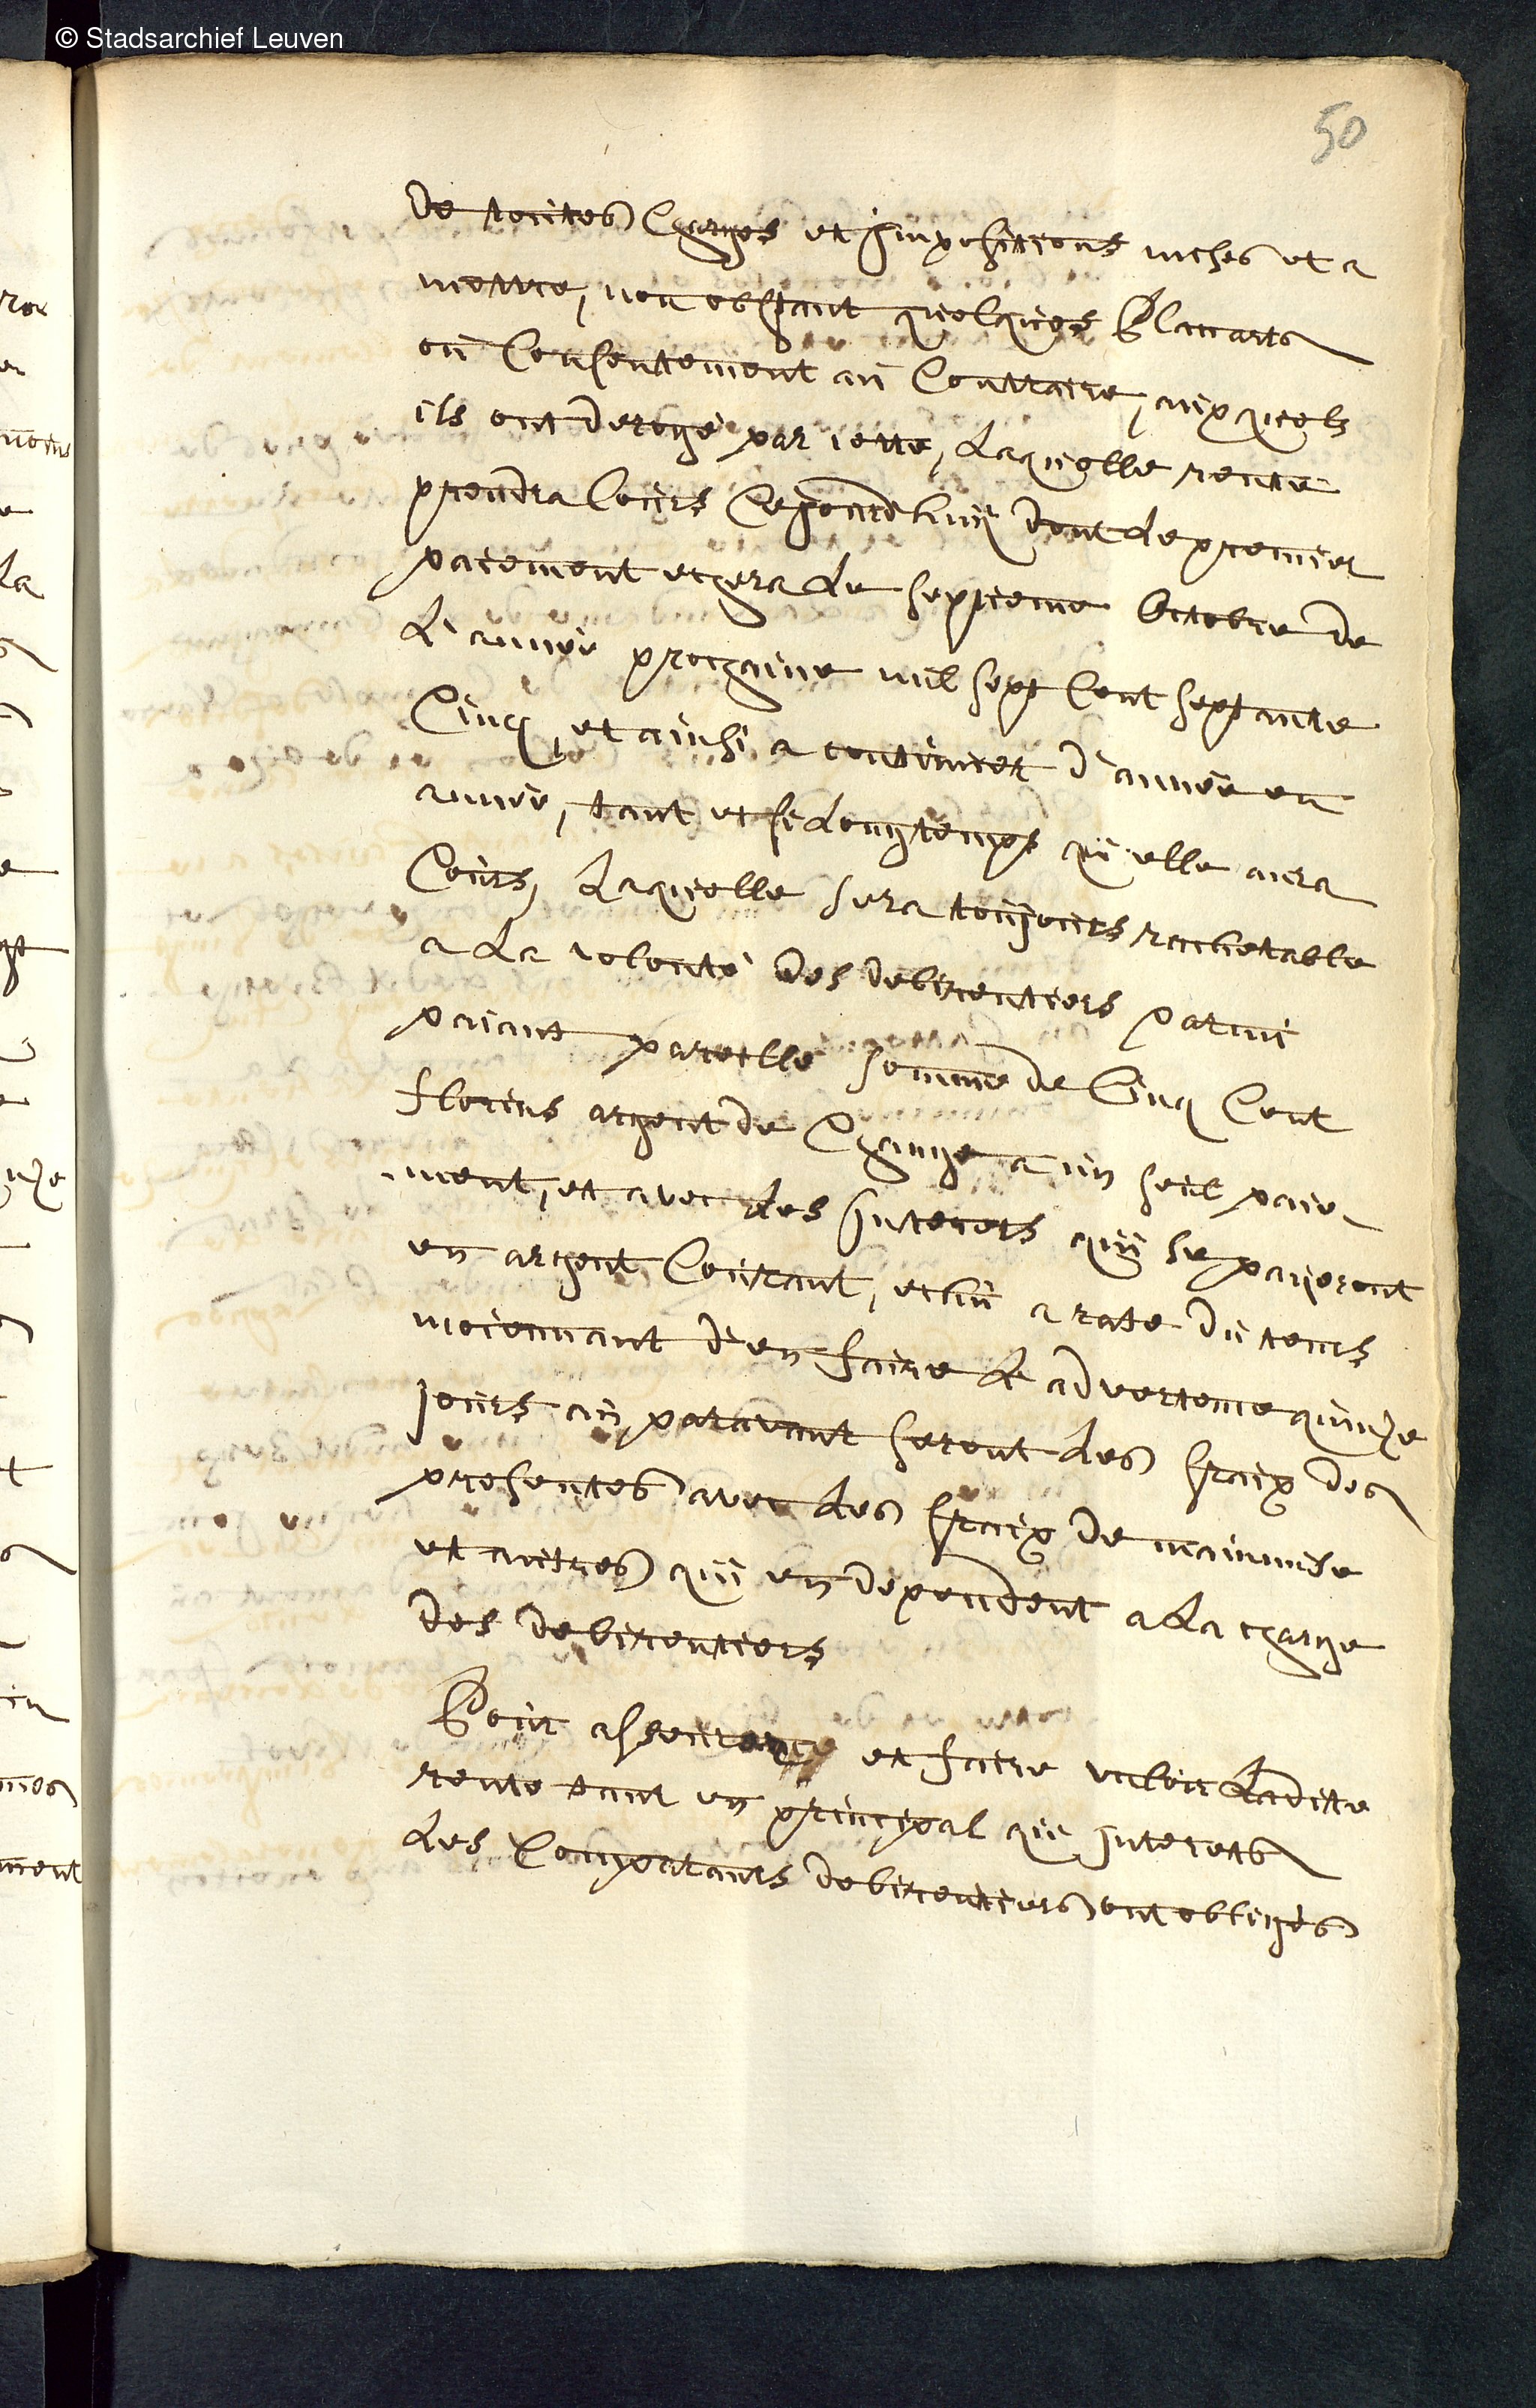 © Stadsarchief Leuven
50
de toutes Charges et Impositions mises et a
mettre, non obstant quelques Placcarts
ou Consentement au Contraire, auxquels
ils ont derogé par cette, Laquelle rente
prendra Cours Cejourdhuij dont Le premier
paiement echera Le septieme Octobre de
L'année prochaine mil sept Cent septante
Cinq, et ainsi a continuer d'année en
année, tant et si Longtemps qu'elle aura
Cours, Laquelle sera toujours rachetable
a La volonté des debirentiers parmi
paiant pareille somme de Cinq Cent
florins argent de Change a un seul paie
-ment, et avec Les Interets qui se payeront
en argent Courant, et au a rate du tems
moiennant d'en faire L'advertence quinze
jours au paravant seront Les fraix des
presentes avec Les fraix de mainmise
et autres qui en dependent a La charge
des debirentiers
Pour asseurance et faire valoir Ladite
rente tant en principal que Interets
Les Comparants debirentiers ont obligés